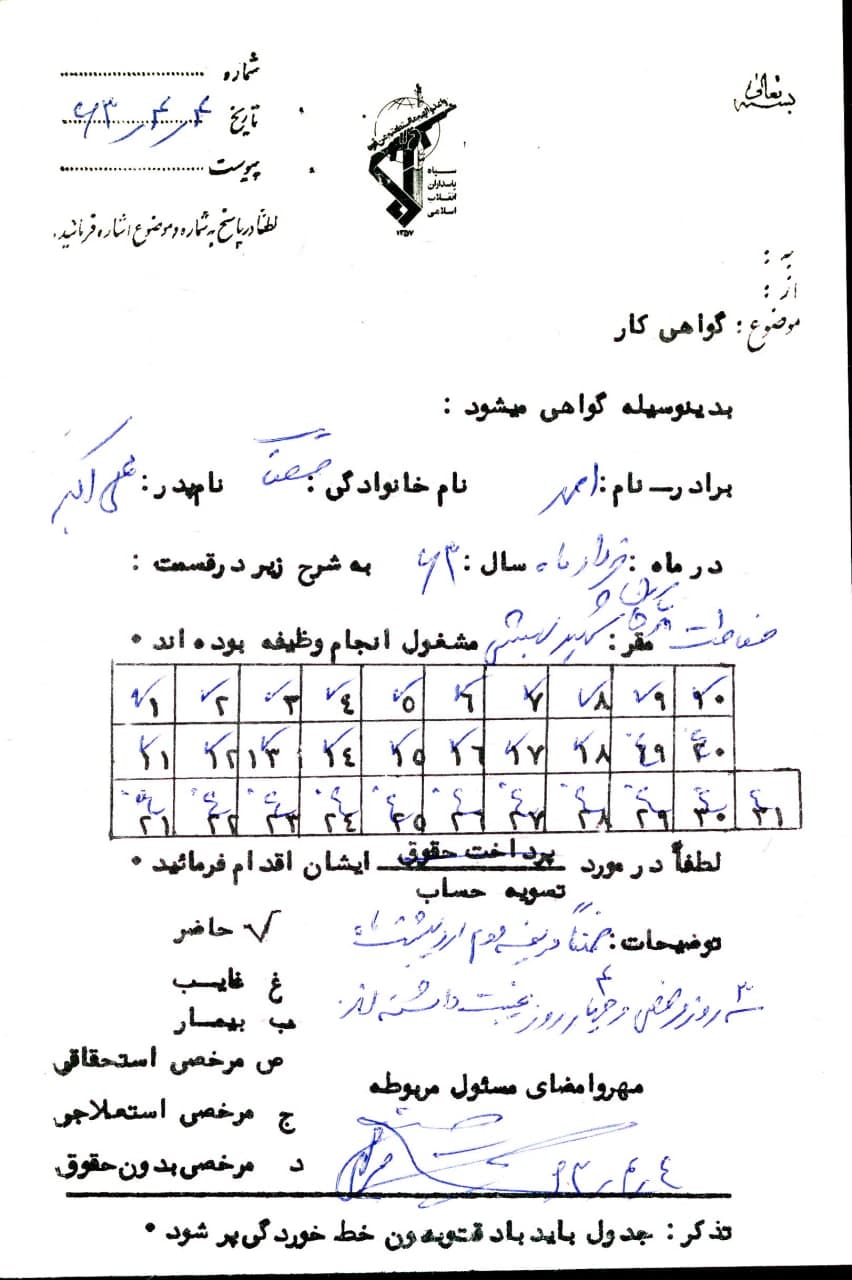 بسمه تعالی
شماره ........................
تاریخ ۶۳/۴/۴
پیوست ........................
لطفاً در پاسخ به شماره و موضوع اشاره فرمائید.
سپاه
پاسداران
انقلاب
اسلامی
۱۳۵۷
به :
از :
موضوع : گواهی کار
بدینوسیله گواهی میشود :
برادر - نام : نام خانوادگی : نام پدر : علی اکبر
در ماه : خرداد ماه سال : ۶۳ به شرح زیر در قسمت :
مقر : شهید بهشتی مشغول انجام وظیفه بوده اند •
۱ ۲ ۳ ٤ ۵ ٦ ۷ ۸ ۹ ۱۰
۱۱ ۱۲ ۱۳ ۱٤ ۱۵ ۱٦ ۱۷ ۱۸ ۱۹ ۲۰
۲۱ ۲۲ ۲۳ ۲٤ ۲۵ ۲٦ ۲۷ ۲۸ ۲۹ ۳۰ ۳۱
لطفاً در مورد پرداخت حقوق ایشان اقدام فرمائید •
تسویه حساب
توضیحات : ضمناً در دوم اردیبهشت ماه
۳ روز مرخصی و چهار روز غیبت داشته اند.
√ حاضر
غ غایب
ب بیمار
ص مرخصی استحقاقی
ج مرخصی استعلاجی
د مرخصی بدون حقوق
مهر و امضای مسئول مربوطه
۶۳/۴/٤
تذکر : جدول باید با دقت و بدون خط خوردگی پر شود •